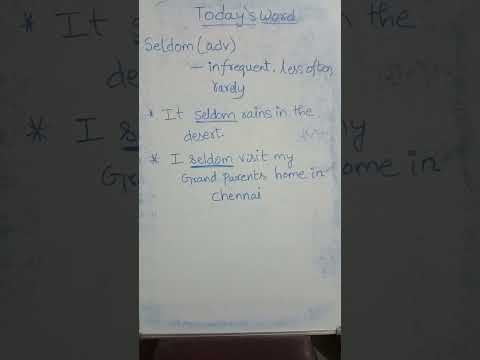 Today's Word
Seldom (adv)
– infrequent, less often,
rarely
* It seldom rains in the
desert.
* I seldom visit my
Grand parents home in
Chennai